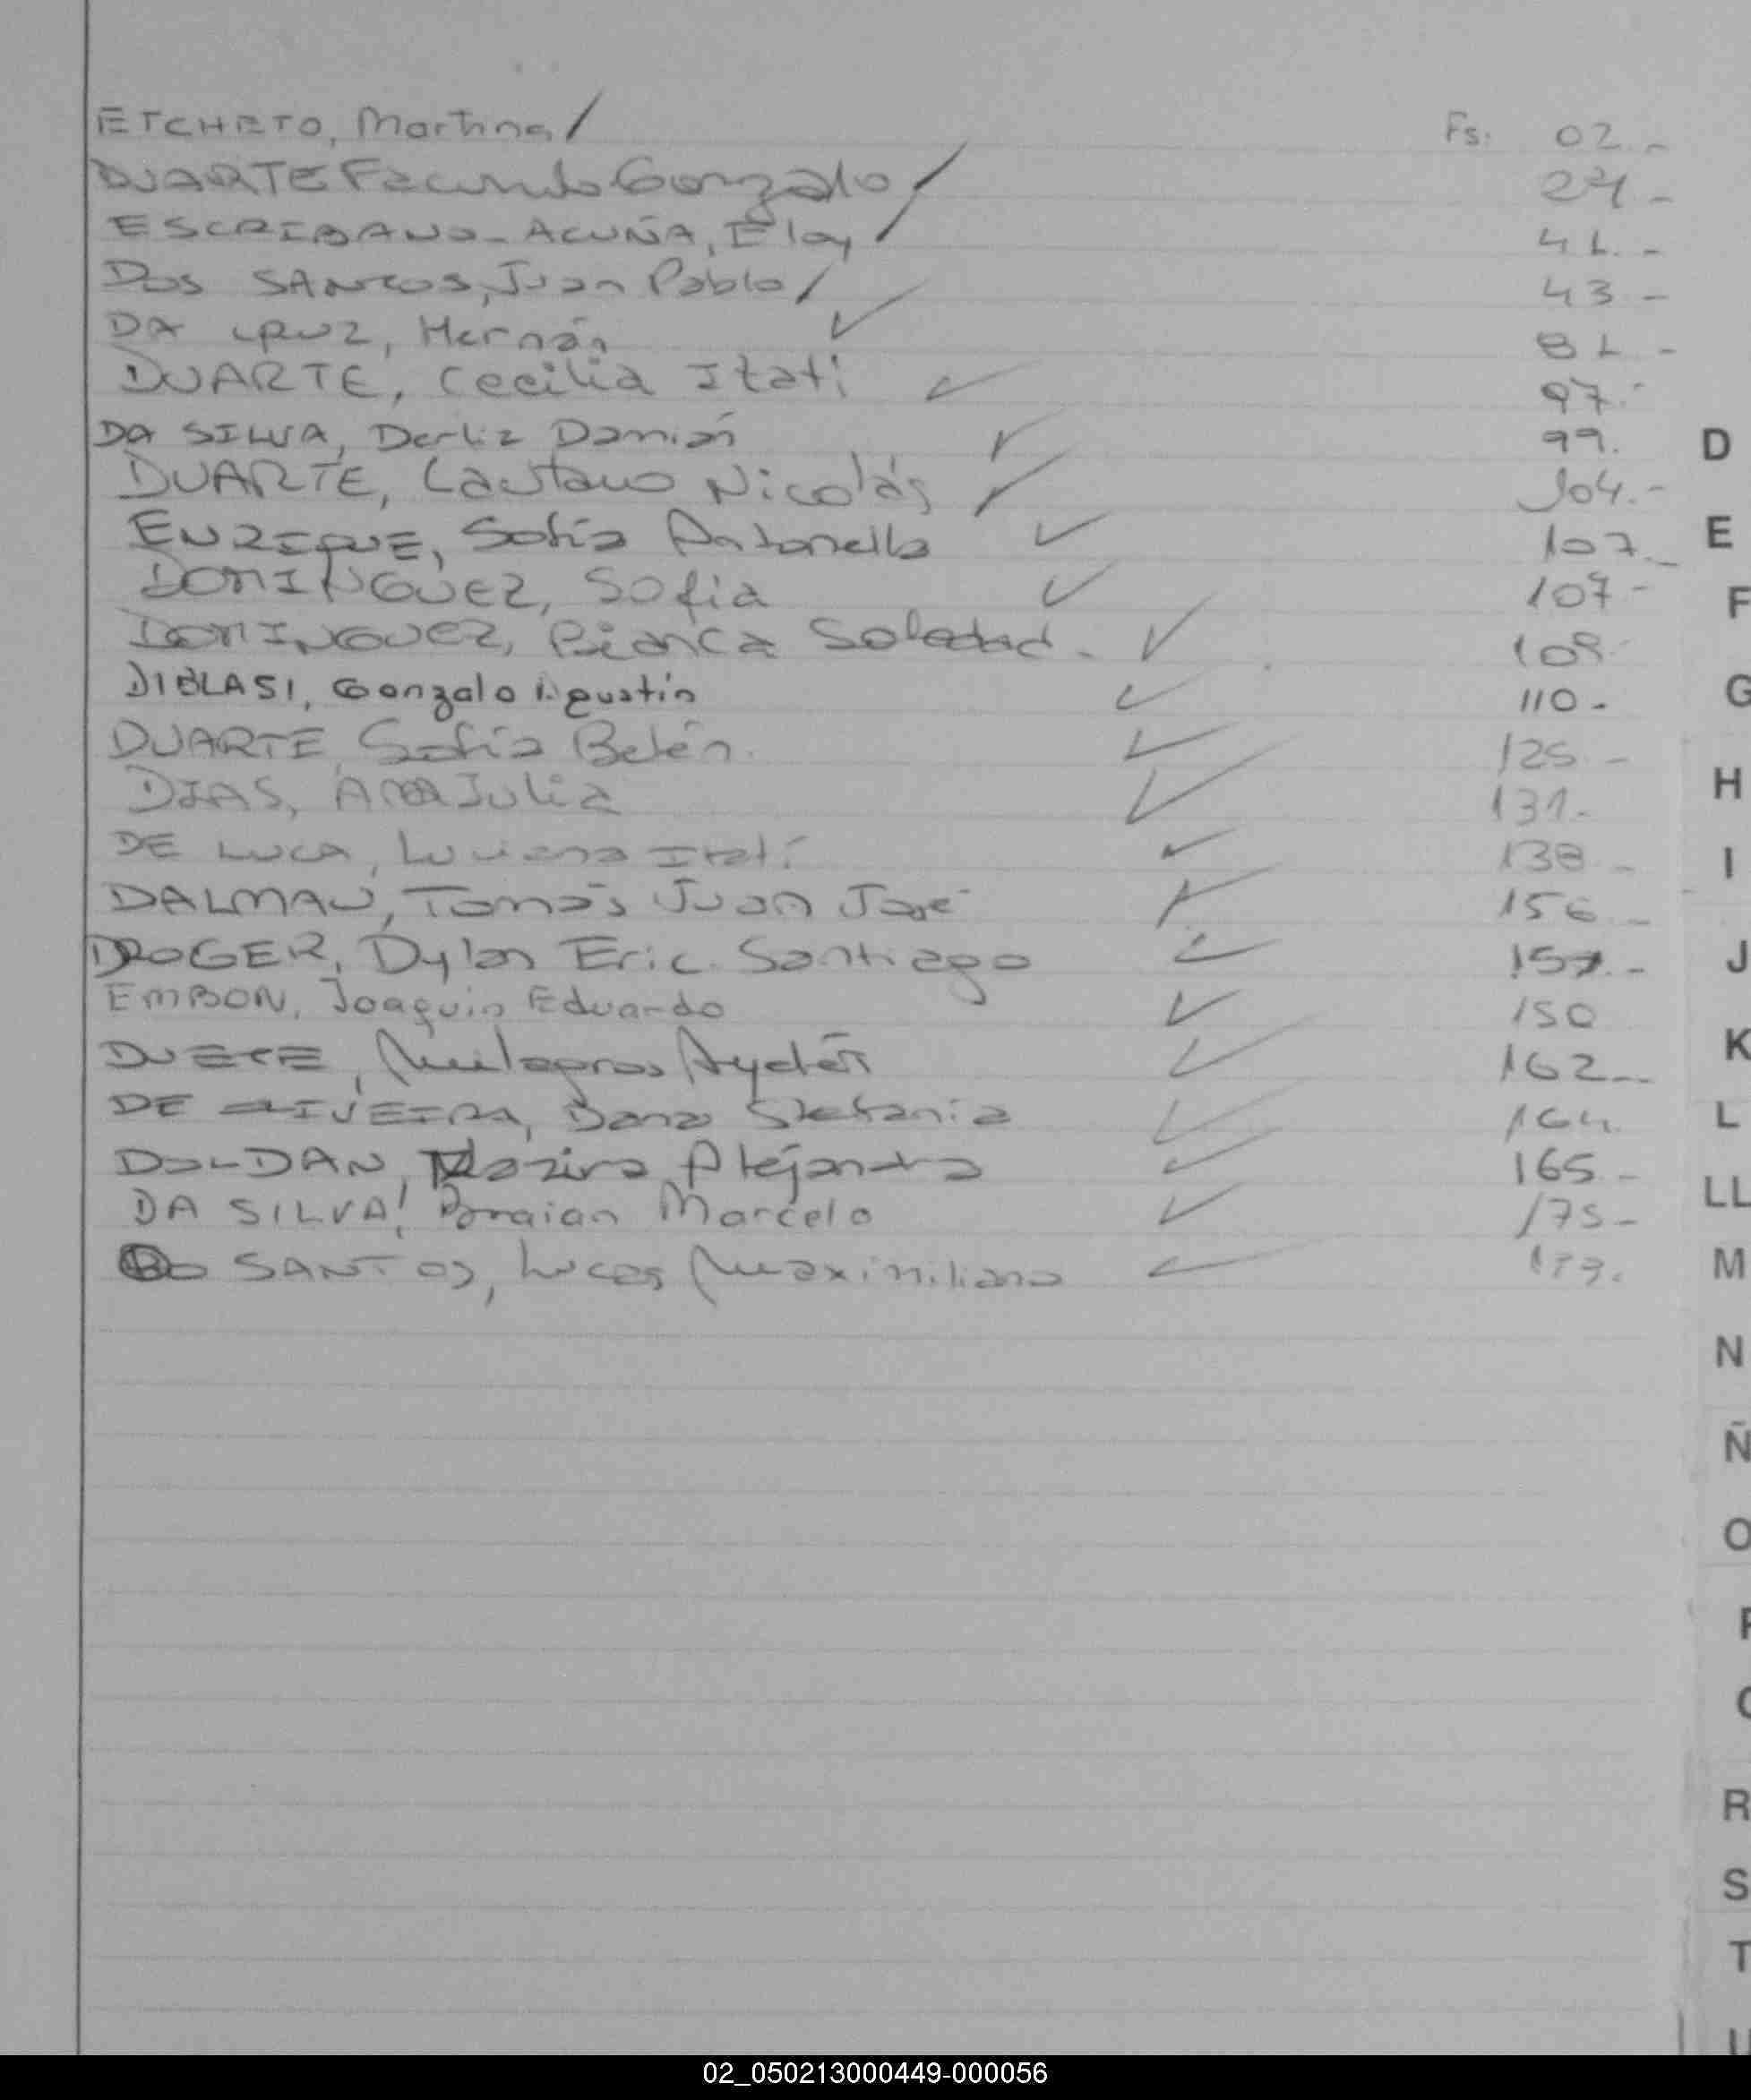 ETCHETO, Martina / Fs. 02.-
DUARTE Facundo Gonzalo / 27-
ESCRIBANO-ACUÑA, Eloy / 41.-
DOS SANTOS, Juan Pablo / 43-
DA CRUZ, Hernán ✓ 81-
DUARTE, Cecilia Itatí ✓ 97.-
DA SILVA, Derliz Damián ✓ 99.
DUARTE, Lautaro Nicolás ✓ 104.-
ENRIQUE, Sofía Antonella ✓ 107.-
DOMINGUEZ, Sofia ✓ 107-
DOMINGUEZ, Bianca Soledad - ✓ 109-
DIBLASI, Gonzalo Agustín ✓ 110-
DUARTE, Sofía Belén. ✓ 125-
DIAS, Ana Julia ✓ 131-
DE LUCA, Luciana Itatí ✓ 138-
DALMAU, Tomás Juan José ✓ 156-
DROGER, Dylan Eric Santiago ✓ 157.-
EMBON, Joaquin Eduardo ✓ 150
Milagros Aydeé ✓ 162-
DE Dana Stefania ✓ 164
DOLDAN, Alejandra ✓ 165-
DA SILVA, Braian Marcelo ✓ 175-
SANTOS, Lucas Maximiliano ✓
D
E
F
G
H
I
J
K
L
LL
M
N
Ñ
O
R
S
T
U
02_050213000449-000056